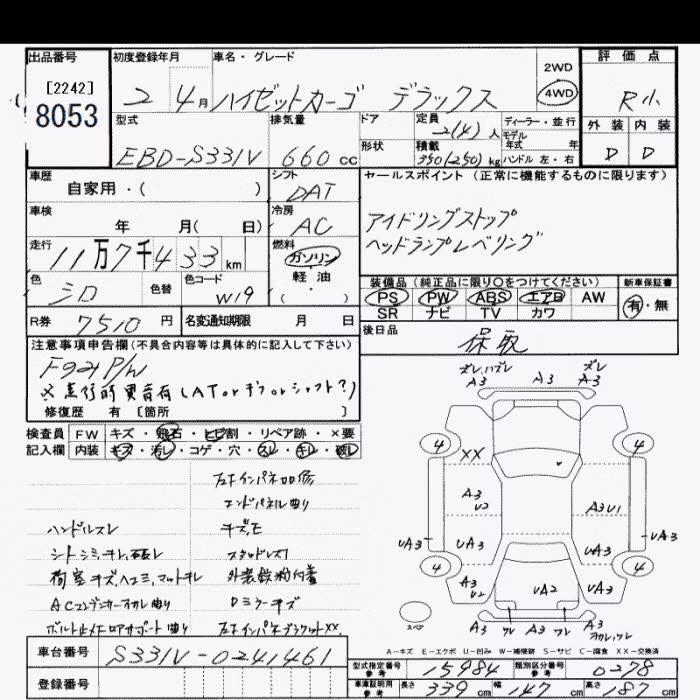 出品番号 初度登録年月 車名・グレード 評価点
[2242]
8053
2 4月 ハイゼットカーゴ デラックス
2WD
4WD
R小
型式 排気量 ドア 定員 2(4)人 ディーラー・並行
モデル
年式 年
外装 内装
EBD-S331V 660cc 形状 積載 350(250)kg ハンドル 左・右
D D
車歴 シフト セールスポイント (正常に機能するものに限ります)
自家用・( ) DAT
車検 冷房
年 月( 日) AC
アイドリングストップ
ヘッドランプレベリング
走行 燃料
11万7千433km ガソリン
軽油
( )
色 色替 色コード
シロ W19
装備品 (純正品に限り〇をつけてください) 新車保証書
PS PW ABS エアB AW 有・無
SR ナビ TV カワ
R券 7510円 名変通知期限 月 日
後日品 保取
注意事項申告欄(不具合内容等は具体的に記入して下さい)
※走行時異音有(ATorデフorシャフト?)
修復歴 有 [箇所 ]
検査員 FW キズ・飛石・ヒビ割・リペア跡・×要
記入欄 内装 キズ・汚レ・コゲ・穴・スレ・キレ・破レ
エンドパネル曲り
ハンドルスレ
外装鉄粉付着
ACコンデンサーコアカレ曲り Dミラーキズ
ズレ,ハズレ ズレ
A3 A3 A3
4 4
XX
A3
U2
A3U1
UA3 UA3 UA3 UA3
4 4
A3
U2
UA2 A3
スペ
A3 ワレ A3 ワレ A3
A-キズ E-エクボ U-凹み W-補修跡 S-サビ C-腐食 XX-交換済
車台番号 S331V-0241461
登録番号
型式指定番号 参考 15984 類別区分番号 参考 0278
車庫証明用 参考 長さ 339cm 幅 147cm 高さ 187cm